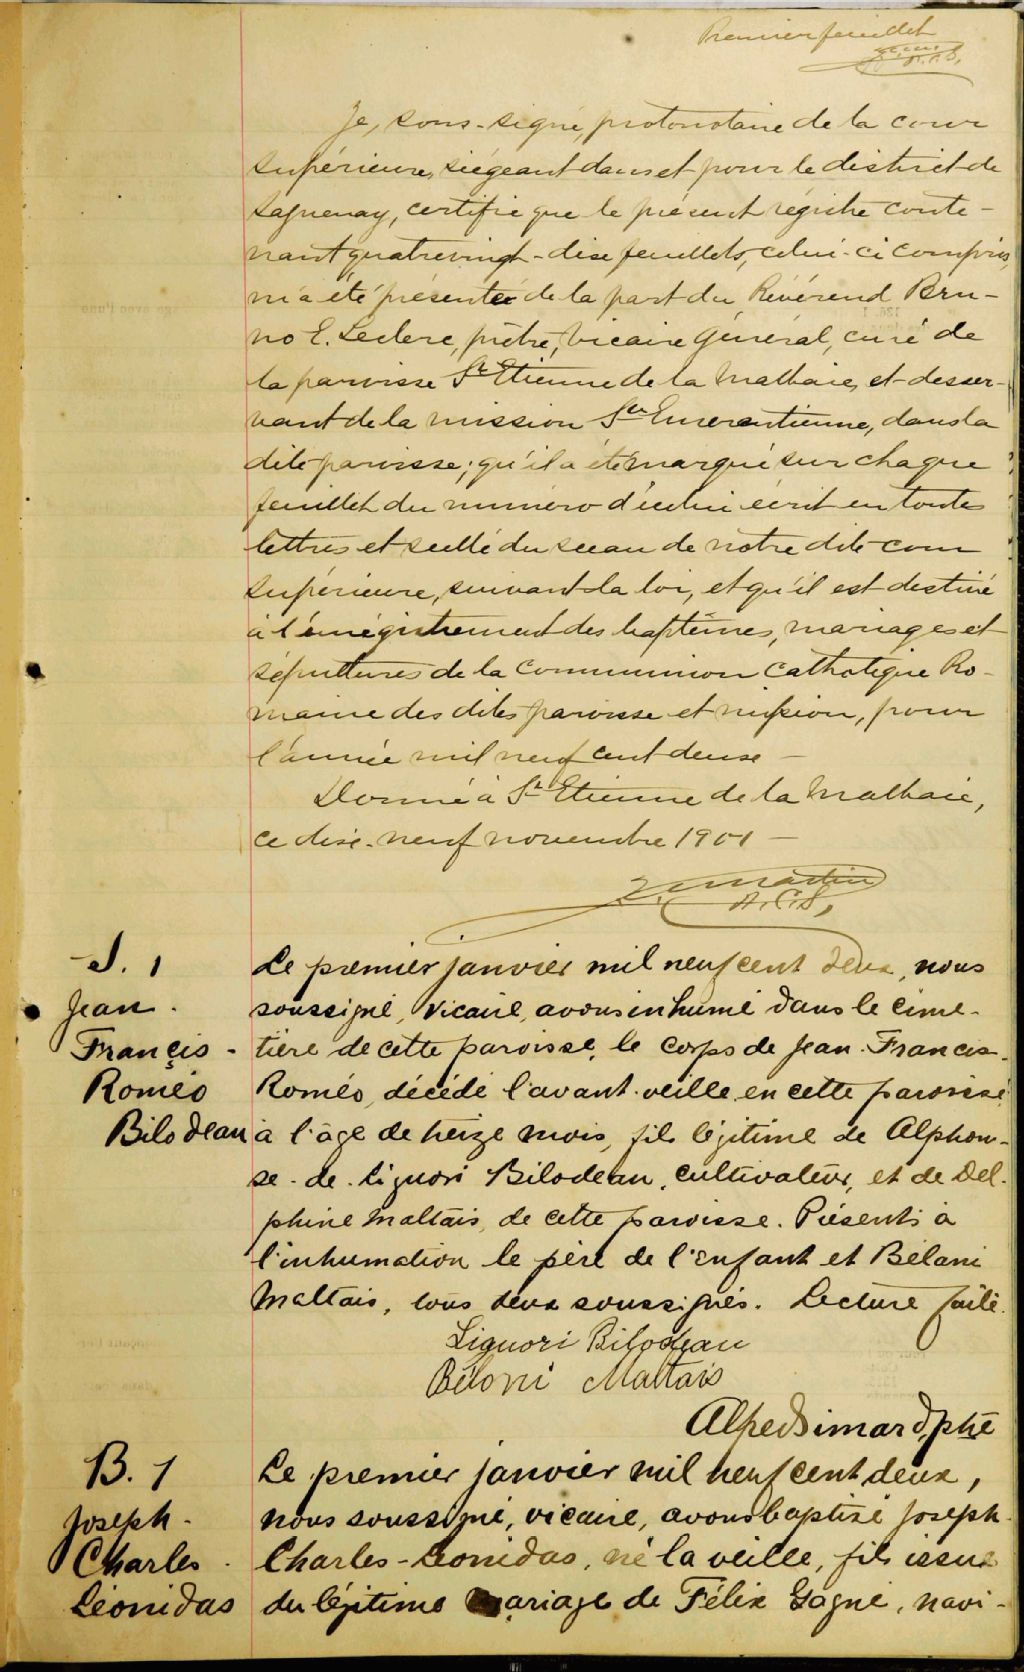 Premier feuillet
Je, sous-signé, protonotaire de la cour
supérieure, siégeant dans et pour le district de
Saguenay, certifie que le présent régistre conte-
nant quatrevingt-dise feuillets, celui-ci compris,
m'a été présenté de la part du Révérend Bru-
no E. Leclerc, prêtre, vicaire général, curé de
la paroisse St Etienne de la Malbaie, et desser-
vant de la mission Ste Emerentienne, dans la
dite paroisse; qu'il a été marqué sur chaque
feuillet du numéro d'icelui écrit en toutes
lettres et scellé du sceau de notre dite cour
supérieure, suivant la loi, et qu'il est destiné
à l'enrégistrement des baptêmes, mariages et
sépultures de la communion Catholique Ro-
maine des dites paroisse et mission, pour
l'année mil neuf cent deuse —
Donné à St Etienne de la Malbaie,
ce dise-neuf novembre 1901 —
Martin
S. 1
Jean.
Françis-
Roméo
Bilodeau
Le premier janvier mil neuf cent deux, nous
soussigné, vicaire, avons inhumé dans le cime-
tière de cette paroisse, le corps de Jean-Francis-
Roméo, décédé l'avant-veille en cette paroisse
à l'âge de treize mois, fils légitime de Alphon-
se-de-Liguori Bilodeau, cultivateur, et de Del-
phine Maltais, de cette paroisse. Présents à
l'inhumation le père de l'enfant et Béloni
Maltais, tous deux soussignés. Lecture faite.
Liguori Bilodeau
Béloni Maltais
Alfed Simard, ptre
B. 1
Joseph-
Charles-
Léonidas
Le premier janvier mil neuf cent deux,
nous soussigné, vicaire, avons baptisé Joseph-
Charles-Léonidas, né la veille, fils issue
du légitime mariage de Félix Gagné, navi-